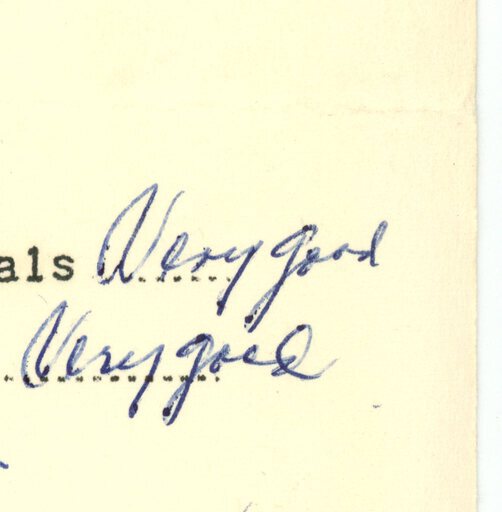 als Very good
Very good